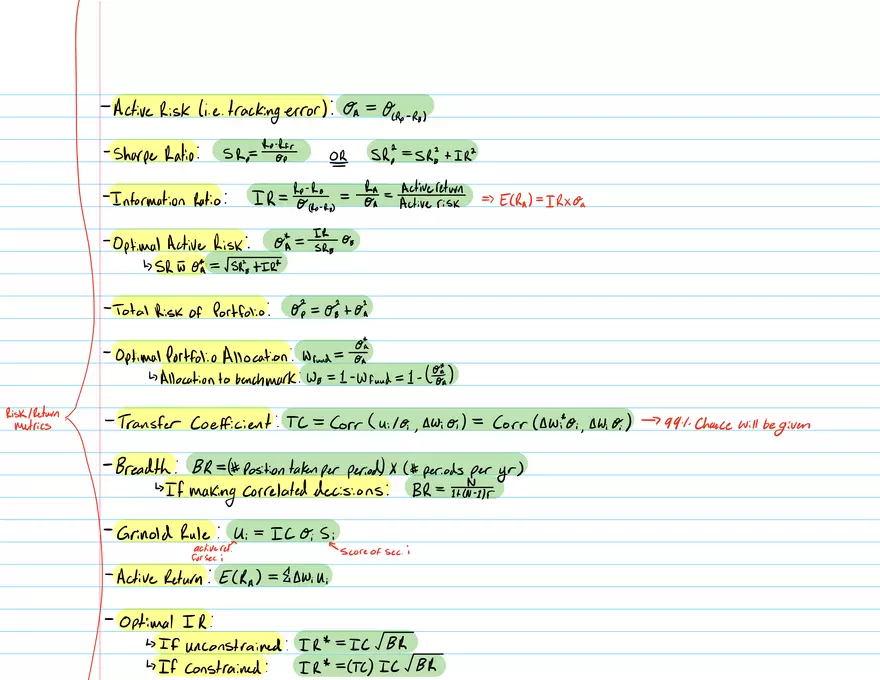 - Active Risk (i.e. tracking error): σ_A = σ_(Rp-RB)
- Sharpe Ratio: SR_p = (Rp-Rfr)/σp OR SR_p² = SR_B² + IR²
- Information Ratio: IR = (Rp-RB)/σ_(Rp-RB) = R_A/σ_A = Active return/Active risk ⇒ E(R_A) = IR x σ_A
- Optimal Active Risk: σ_A* = (IR/SR_B) σ_B
↳ SR w̄ σ_A* = √(SR_B² + IR²)
- Total Risk of Portfolio: σ_p² = σ_B² + σ_A²
- Optimal Portfolio Allocation: W_fund = σ_A*/σ_A
↳ Allocation to benchmark: W_B = 1 - W_Fund = 1 - (σ_A*/σ_A)
Risk/Return
metrics
- Transfer Coefficient: TC = Corr (u_i/σ_i, Δw_i σ_i) = Corr (Δw_i* σ_i, Δw_i σ_i) → 99% Chance will be given
- Breadth: BR = (# Position taken per period) X (# periods per yr)
↳ If making correlated decisions: BR = N/(1+(N-1)r)
- Grinold Rule: u_i = IC σ_i S_i
active ret.
for sec. i
Score of sec. i
- Active Return: E(R_A) = ΣΔw_i u_i
- Optimal IR:
↳ If unconstrained: IR* = IC √BR
↳ If constrained: IR* = (TC) IC √BR